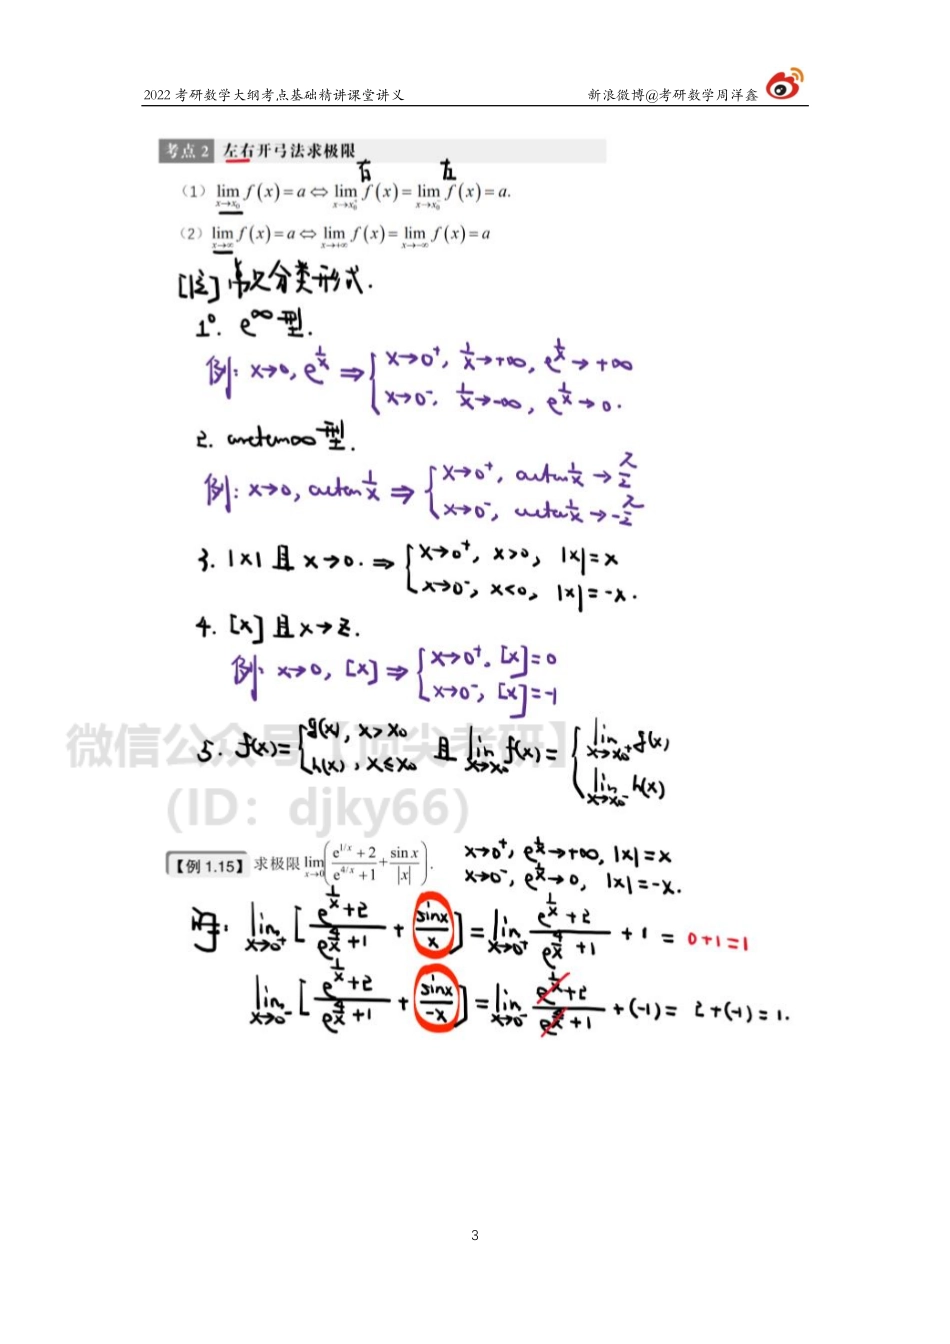 2022 考研数学大纲考点基础精讲课堂讲义 新浪微博@考研数学周洋鑫
考点 2 左右开弓法求极限
右 左
(1) lim_{x→x₀} f(x)=a⇔lim_{x→x₀⁺} f(x)=lim_{x→x₀⁻} f(x)=a.
(2) lim_{x→∞} f(x)=a⇔lim_{x→+∞} f(x)=lim_{x→-∞} f(x)=a
[注] 常见分类形式.
1°. e^∞型.
例: x→0, e^{1/x} ⇒ { x→0⁺, 1/x→+∞, e^{1/x}→+∞
x→0⁻, 1/x→-∞, e^{1/x}→0.
2. arctan∞型.
例: x→0, arctan 1/x ⇒ { x→0⁺, arctan 1/x → π/2
x→0⁻, arctan 1/x → -π/2
3. |x| 且 x→0. ⇒ { x→0⁺, x>0, |x|=x
x→0⁻, x<0, |x|=-x.
4. [x] 且 x→Z.
例: x→0, [x] ⇒ { x→0⁺, [x]=0
x→0⁻, [x]=-1
微信公众号【顶尖考研】
(ID: djky66)
5. f(x)= { g(x), x>x₀
h(x), x≤x₀ 且 lim_{x→x₀} f(x)= { lim_{x→x₀⁺} g(x)
lim_{x→x₀⁻} h(x)
【例 1.15】 求极限 lim_{x→0} ( (e^{1/x}+2)/(e^{4/x}+1) + sin x/|x| ).
x→0⁺, e^{1/x}→+∞, |x|=x
x→0⁻, e^{1/x}→0, |x|=-x.
解: lim_{x→0⁺} [ (e^{1/x}+2)/(e^{4/x}+1) + sinx/x ] = lim_{x→0⁺} (e^{1/x}+2)/(e^{4/x}+1) + 1 = 0+1=1
lim_{x→0⁻} [ (e^{1/x}+2)/(e^{4/x}+1) + sinx/-x ] = lim_{x→0⁻} (e^{1/x}+2)/(e^{4/x}+1) + (-1) = 2+(-1)=1.
3